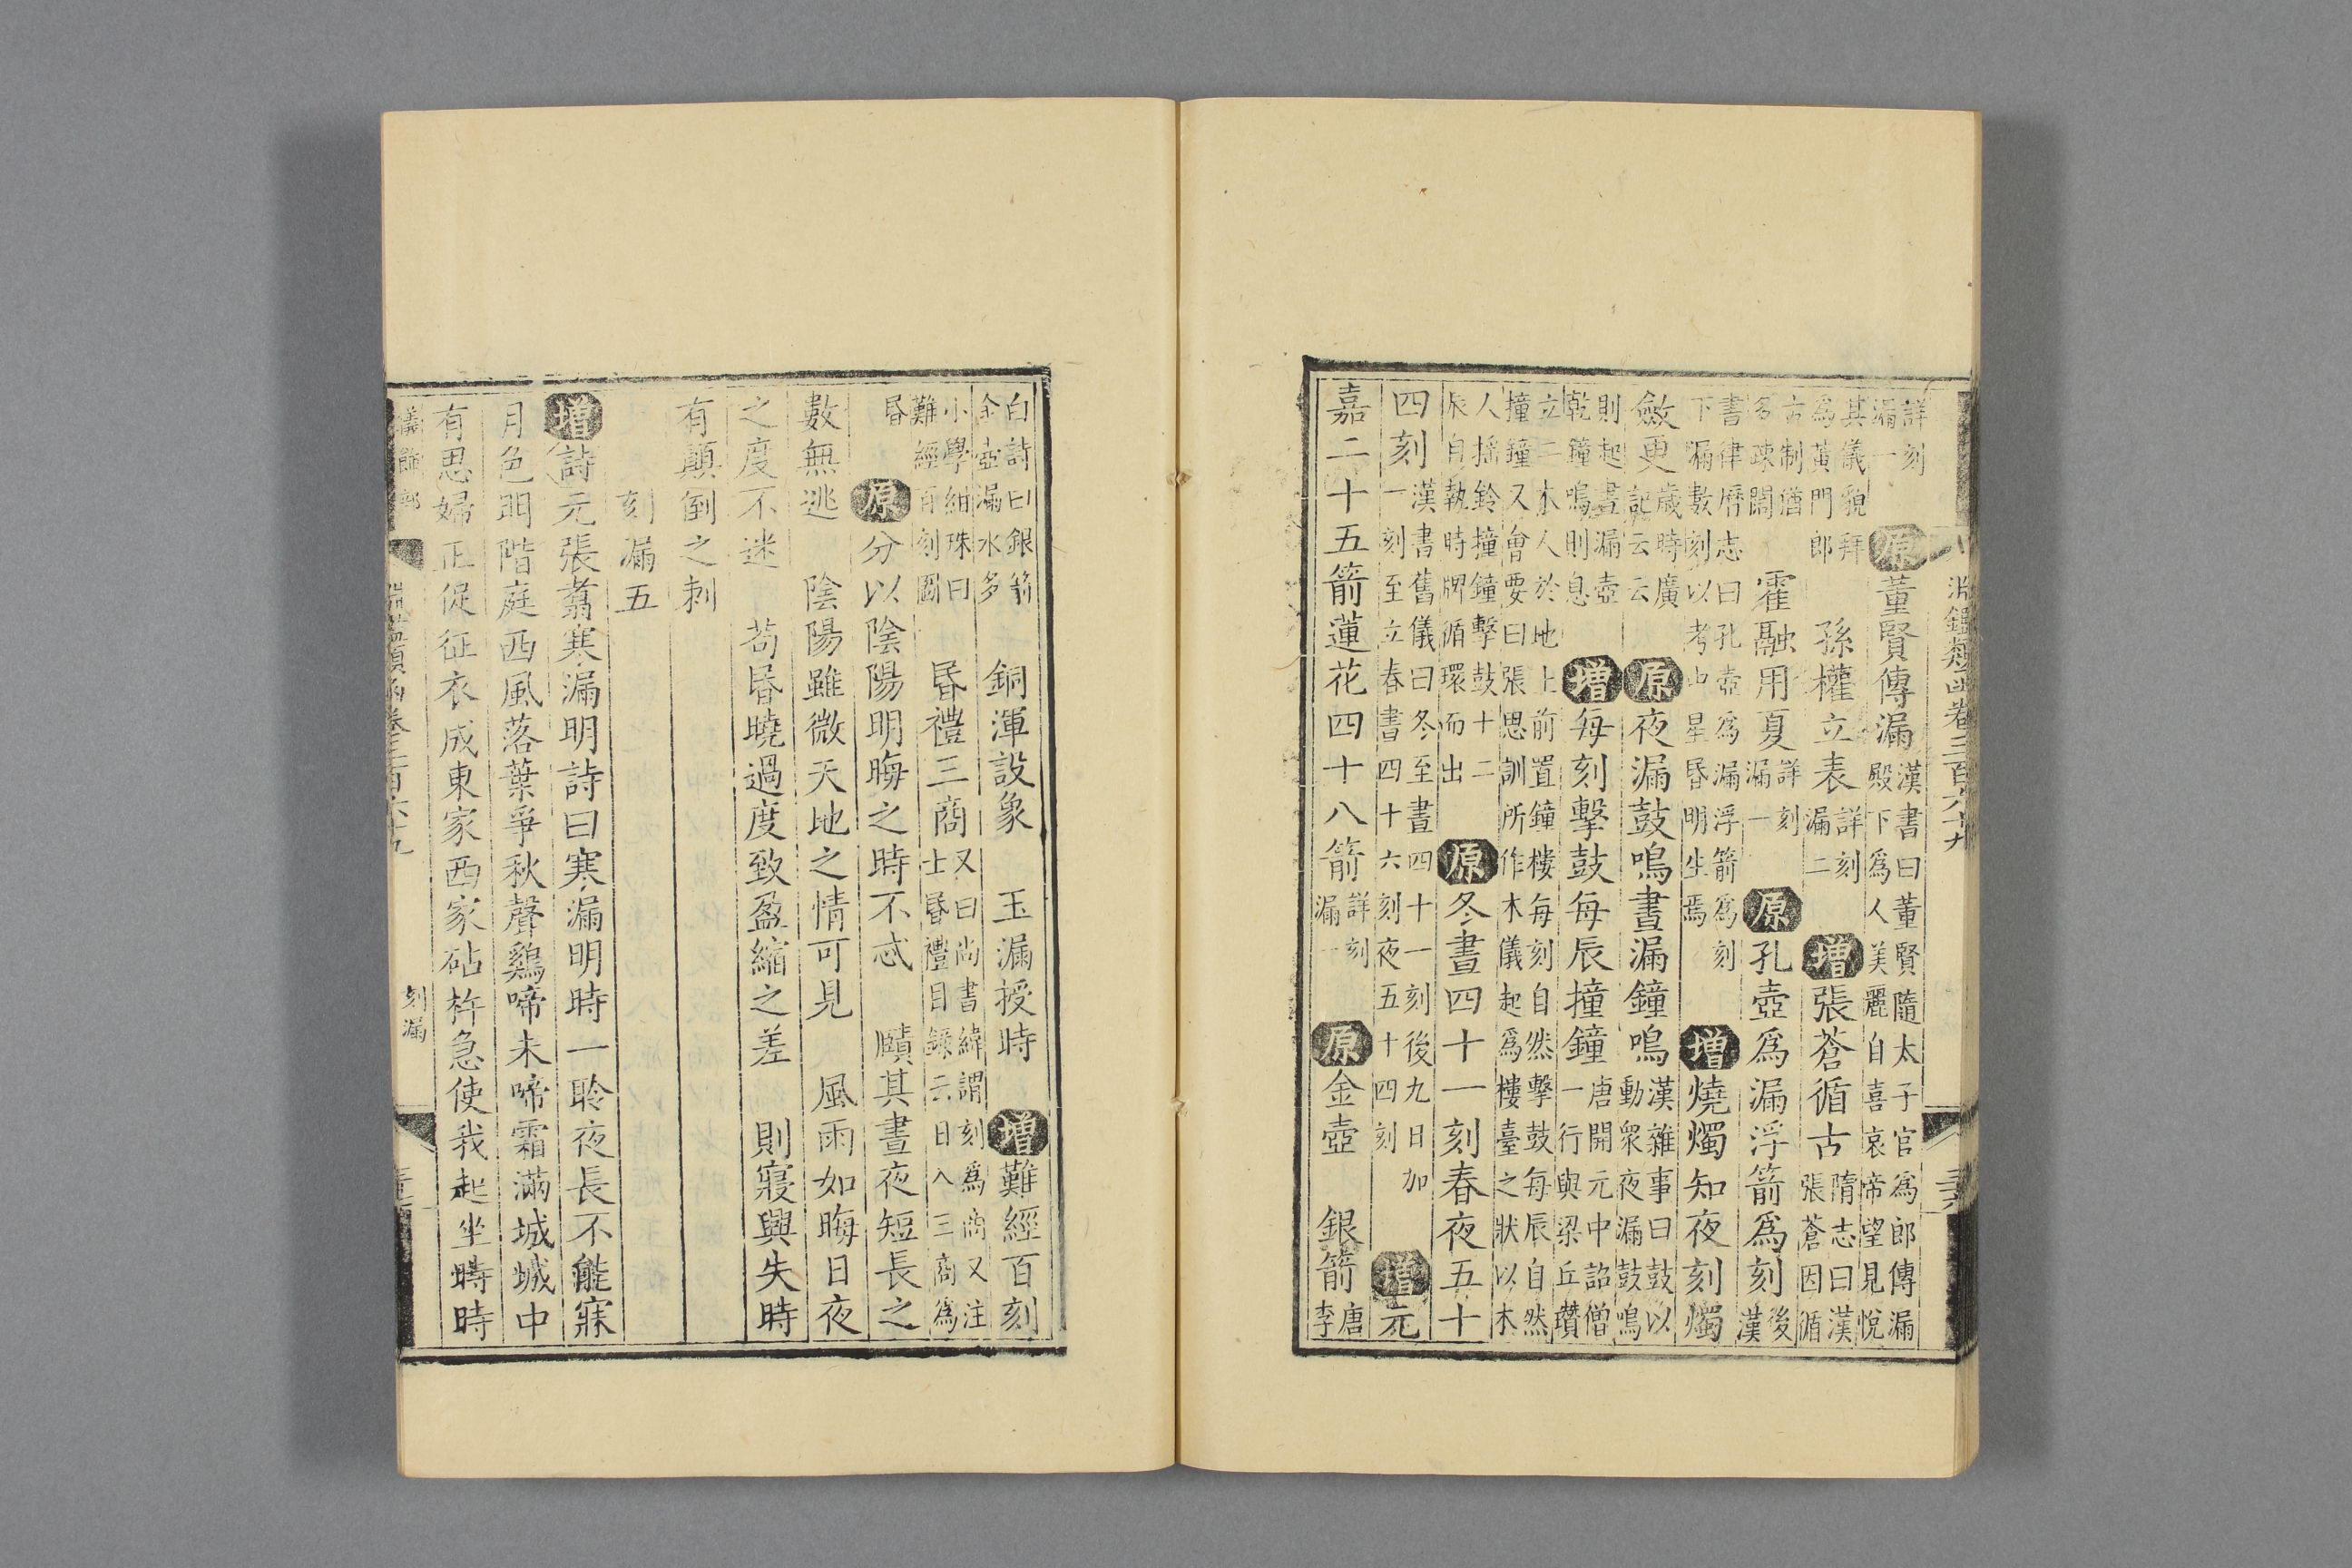 淵鑑類函卷三百六十九
詳刻漏一原董賢傳漏漢書曰董賢隨太子官爲郎傳漏殿下爲人美麗自喜哀帝望見悅
其儀貌拜爲黃門郎孫權立表詳刻漏二增張蒼循古隋志曰漢張蒼因循
古制猶多疎闊霍融用夏詳刻漏一原孔壺爲漏浮箭爲刻後漢
書律曆志曰孔壺爲漏浮箭爲刻下漏數刻以考中星昏明生焉增燒燭知夜刻燭
斂更歲時廣記云云原夜漏鼓鳴晝漏鐘鳴漢雜事曰鼓以動衆夜漏鼓鳴
則起晝漏壺乾鐘鳴則息增每刻擊鼓每辰撞鐘唐開元中詔僧一行與梁丘瓚
立二木人於地上前置鐘樓每刻自然擊鼓每辰自然撞鐘又會要曰張思訓所作木儀起爲樓臺之狀以木
人揺鈴撞鐘擊鼓十二辰自執時牌循環而出原冬晝四十一刻春夜五十
四刻漢書舊儀曰冬至晝四十一刻後九日加一刻至立春晝四十六刻夜五十四刻增元
嘉二十五箭蓮花四十八箭詳刻漏一原金壺 銀箭唐李
白詩曰銀箭金壺漏水多銅渾設象 玉漏授時增難經百刻
小學紺珠曰難經百刻圖昏禮三商又曰尚書緯謂刻爲商又注士昏禮目錄云日入三商爲
昏原分以陰陽明晦之時不忒 賾其晝夜短長之
數無逃 陰陽雖微天地之情可見 風雨如晦日夜
之度不迷 苟昏曉過度致盈縮之差 則寢興失時
有顛倒之刺
刻漏五
增詩元張翥寒漏明詩曰寒漏明時一聆夜長不能寐
月色明階庭西風落葉爭秋聲鷄啼未啼霜滿城城中
有思婦正促征衣成東家西家砧杵急使我起坐時時
儀飾部 淵鑑類函卷三百六十九 刻漏